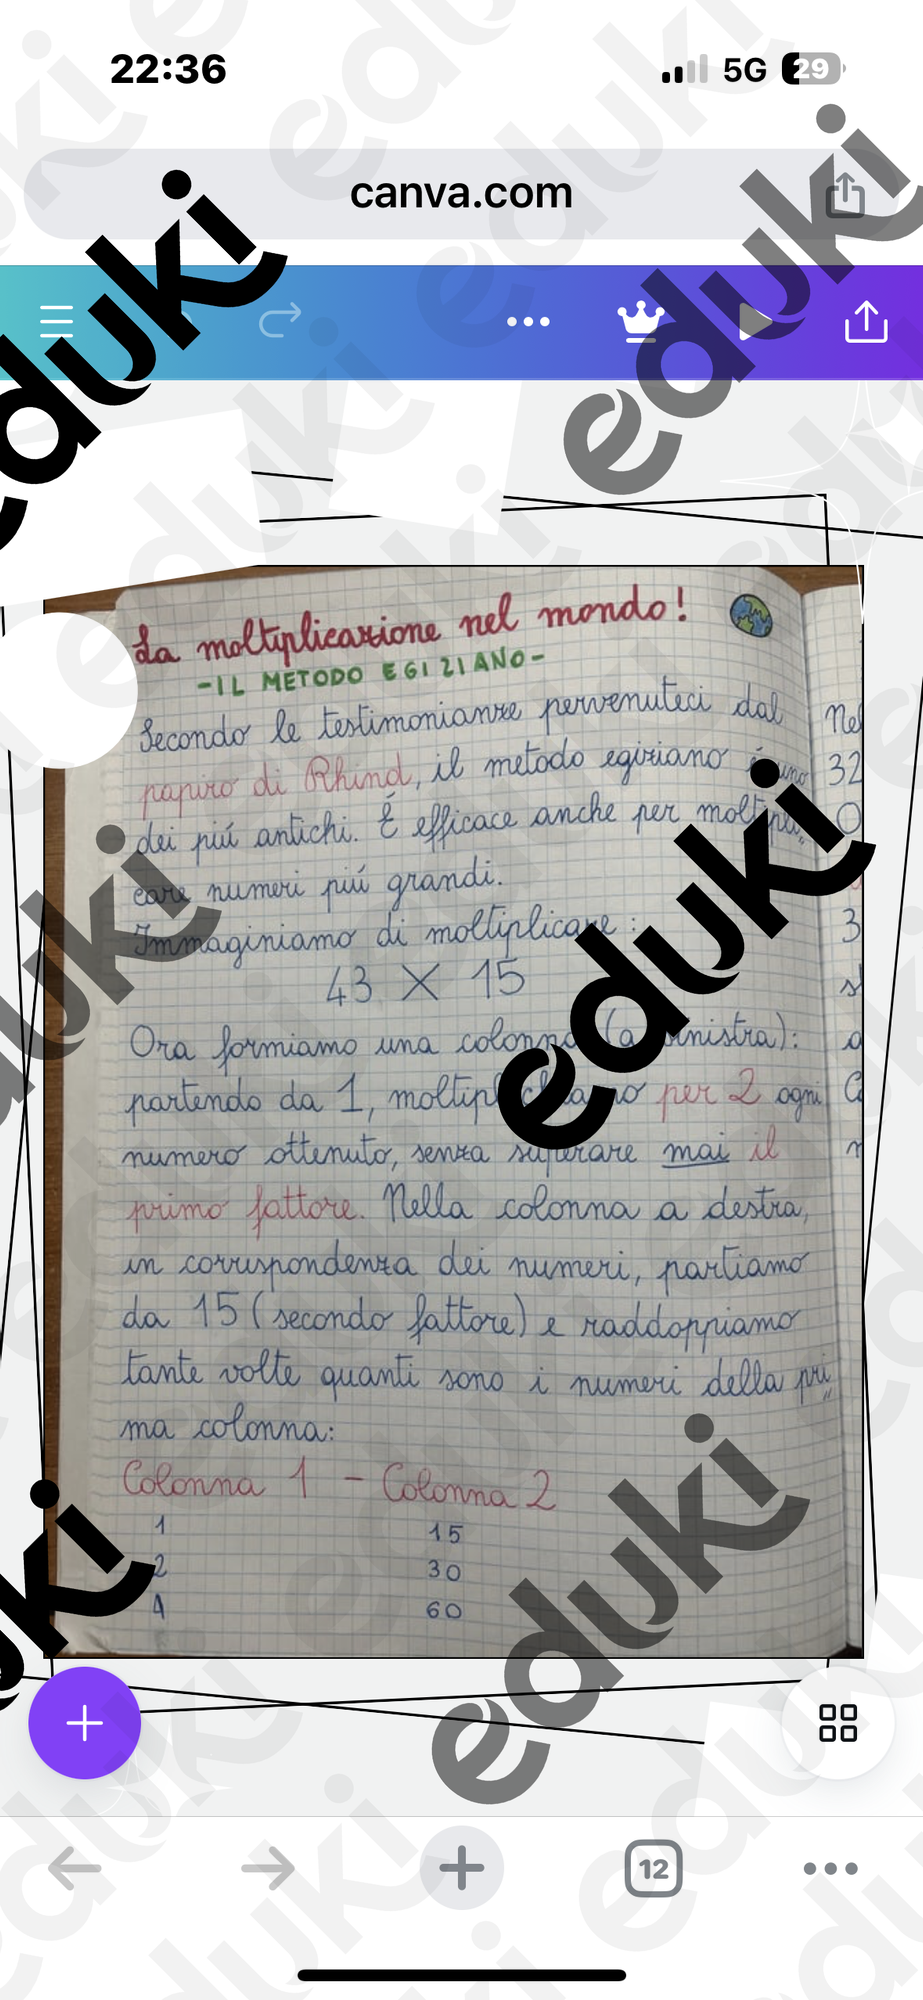 22:36
5G 29
canva.com
La moltiplicazione nel mondo!
-IL METODO EGIZIANO-
Secondo le testimonianze pervenuteci dal
papiro di Rhind, il metodo egiziano é uno
dei piú antichi. É efficace anche per moltipli„
care numeri piú grandi.
Immaginiamo di moltiplicare :
43 X 15
Ora formiamo una colonna (a sinistra):
partendo da 1, moltiplichiamo per 2 ogni
numero ottenuto, senza superare mai il
primo fattore. Nella colonna a destra,
in corrispondenza dei numeri, partiamo
da 15 (secondo fattore) e raddoppiamo
tante volte quanti sono i numeri della pri„
ma colonna:
Colonna 1 - Colonna 2
1 15
2 30
4 60
Nel
32
O
3
eduki
eduki
eduki
eduki
eduki
eduki
12